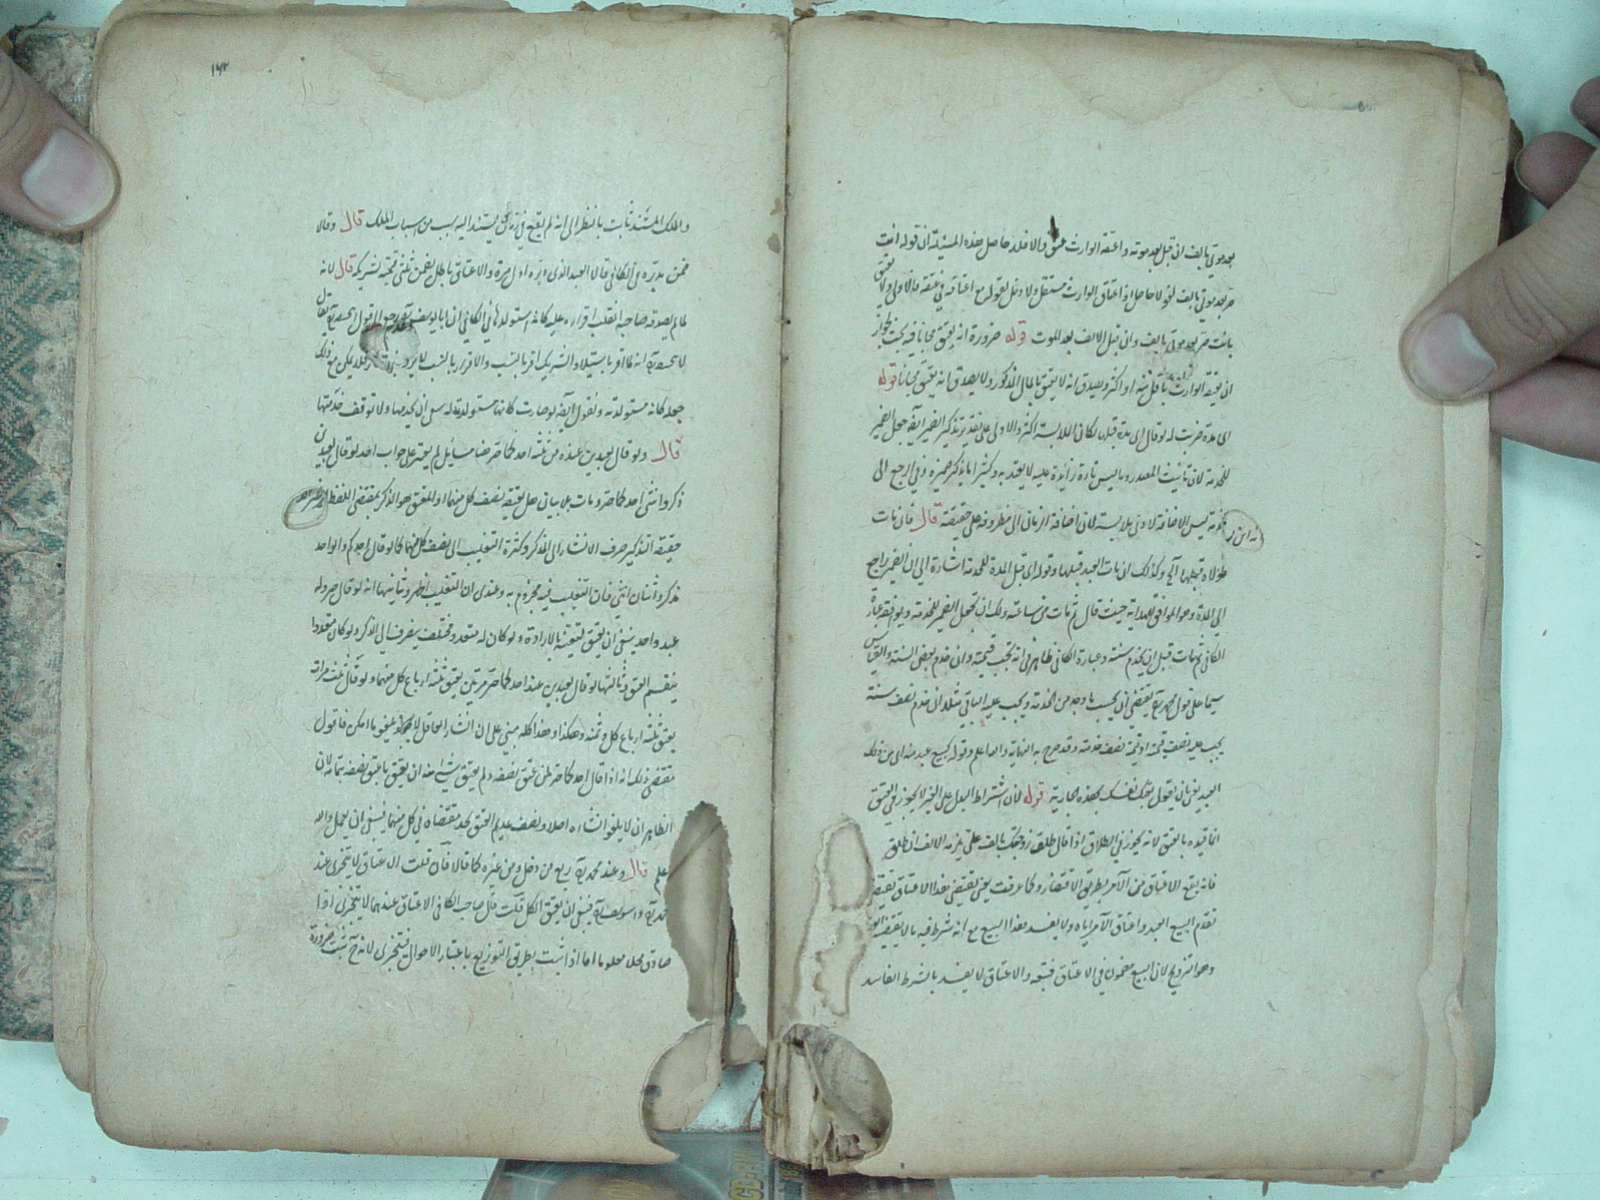 بعد موتي بالف ان قبل بعد موته واعتقه الوارث عتق والا فلا حاصل هذه المسئلة ان قوله انت
حر بعد موتي بالف لغو لا حاصل اذ اعتاق الوارث مستقل ولا دخل لقوله مع اعتاقه في عتقه فالاولى ولا يعتق
بانت حر بعد موتي بالف وان قبل الالف بعد الموت قوله ضرورة انه يعتق مجانا فيه بحث لجواز
ان يعتقه الوارث باقل منه او اكثر ويصدق انه لا يعتق بالمال المذكور ولا يصدق انه يعتق مجانا قوله
الى مدة ضربت له لو قال الى مدة قبلها لكان اكثر والاولى على تقدير تذكير الضمير ايضا جعل الضمير
للخدمة لان تانيث المصدر وما ليس تاءه زائدة عليه لا يعتد به وكثيرا ما يذكر ضميره وفي ارجع الى
ليس الاضافة لادنى ملابسة لان اضافة الزمان الى مظروفه على حقيقة قال فان مات
مولاه قبلها الخ وكذلك ان مات العبد قبلها وقوله اي قبل المدة للخدمة اشارة الى ان الضمير راجع
الى المدة وهو الموافق للهداية حيث قال ثم مات من ساعته ولك ان تجعل الضمير للخدمة ويوافقه عبارة
الكافي ثم مات قبل ان يخدم سنة وعبارة الكافي ظاهر في انه تجب قيمته وان خدم بعض السنة والقياس
سيما على قول محمد يقتضي ان يحسب ما وجد من الخدمة ويجب عليه الباقي مثلا ان خدم نصف سنة
يجب عليه نصف قيمته او قيمة نصف خدمته وقد صرح به النهاية والله اعلم وقوله كبيع عبد منه اي من ذلك
العبد يعني بان يقول بعتك نفسك بهذه الجارية قوله لان اشتراط البدل على الغير لا يجوز في العتق
انما قيده بالعتق لانه يجوز في الطلاق اذ اقال طلق زوجتك بالف على يلزمه الالف ان طلق
فانه يقع الاعتاق عن الآمر بطريق الاقتضاء وكما عرفت يعني يقتضي هذا الاعتاق
تقدم البيع العبد واعتاق الآمر اياه ولا يفسد هذا البيع مع انه شرط فيه ما لا يقتضيه
وهو التزويج لان البيع مضمون في الاعتاق فتبعه والاعتاق لا يفسد بالشرط الفاسد
١٤٢
والملك المستند ثابت بالنظر الى انه لم يقع في يستند اليه بسبب من اسباب الملك قال وقالا
ضمن مدبره في الكافي قالا العبد الذي دبره اول مرة والاعتاق باطل يضمن ثلثي قيمته لشريكه قال لانه
لما لم يصدقه صاحبه انقلب اقراره عليه كانه استولدها في الكافي ان ابا يوسف
لا انه لما اقر باستيلاد الشريك اقر بالنسب والاقرار بالنسب لا يرتد فلا يمكن مع ذلك
جعله كانه مستولدته ونقول ايضا لو صارت كانها مستولدته له ان يخدمها ولا توقف خدمتها
قال ولو قال لعبدين عنده من ثلثة احدكما حر هنا مسائل لم يعثر على جواب احد لو قال لعبدين
ذكر وانثى احدكما حر ومات بلا بيان هل يعتق نصف كل منهما او المعتق هو الذكر بمقتضى اللفظ
حقيقة التذكير صرف الانشاء الى الذكر وكثرة التغليب الى نصف كل منهما كما لو قال احدكم والواحد
مذكر واثنان انثى فان التغليب فيه مجزوم به وعندي ان التغليب اظهر وثانيها انه لو قال حر وله
عبد واحد ينبغي ان يعتق لتعينه بالارادة ولو كان له متعدد ومختلف يصرف الى الذكر ولو كان متعددا
ينقسم العتق وثالثها لو قال لعبدين عند احدكما حر مرتين يعتق ثلثة ارباع كل منهما ولو قال ثلث مرات
يعتق ثلثة ارباع كل وثمنه وهكذا وهذا كله مبني على ان انشاء العاقل لا يلغو ما امكن فاقول
مقتضى ذلك انه اذا قال احدكما حر لمن عتق نصفه ولم يعتق شيء منه ان يعتق ما عتق نصفه بتمامه لان
الظاهر ان لا يلغو انشاءه اصلا ونصف عديم العتق لحد مقتضاه في كل منهما فينبغي ان يعمل والله
اعلم قال وعند محمد ربع من دخل ومن غيره كما قالا فان قلت الاعتاق لا يتجزى عند
محمد وابو يوسف فينبغي ان يعتق الكل قلت قال صاحب الكافي الاعتاق عندهما لا يتجزى اذا
صادق محلا معلوما اما اذا ثبت بطريق التوزيع باعتبار الاحوال فيتجزى لانه ح ثبت ضرورة